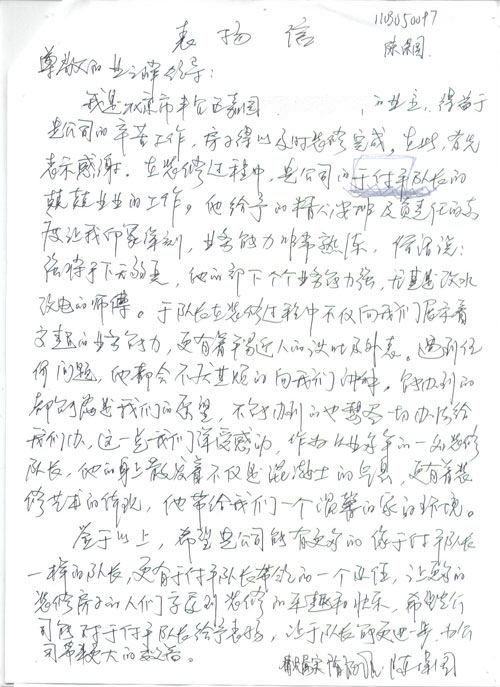 1103050097
表扬信
尊敬的业之峰领导：
我是北京市丰台区嘉园 的业主，得益于
贵公司的辛苦工作，房子得以及时装修完成。在此，首先
表示感谢。在装修过程中，贵公司的于付军队长的
兢兢业业的工作，他给予的精心安排及负责任的态
度让我印象深刻，业务能力非常熟练，俗话说：
强将手下无弱兵，他的部下个个业务能力强，尤其是改水
改电的师傅。于队长在装修过程中不仅向我们展示着
的业务能力，更有着平易近人的谈吐及外表。遇到任
何问题，他都会不厌其烦的向我们讲解，能办到的
都会满足我们的愿望，不能办到的也想尽一切办法给
我们办，这一点我们深受感动，作为从业多年的一名装修
队长，他的身上散发着不仅是混凝土的气息，更有着装
修艺术的体现，他带给我们一个温馨的家的环境。
鉴于以上，希望贵公司能有更多的像于付军队长
一样的队长，更有于付军队长带领的一个团体，让更多的
装修房子的人们享受到装修的乐趣和快乐，希望贵公
司能对于付军队长给予表扬，让于队长能更进一步，为公
司带来更大的效益。